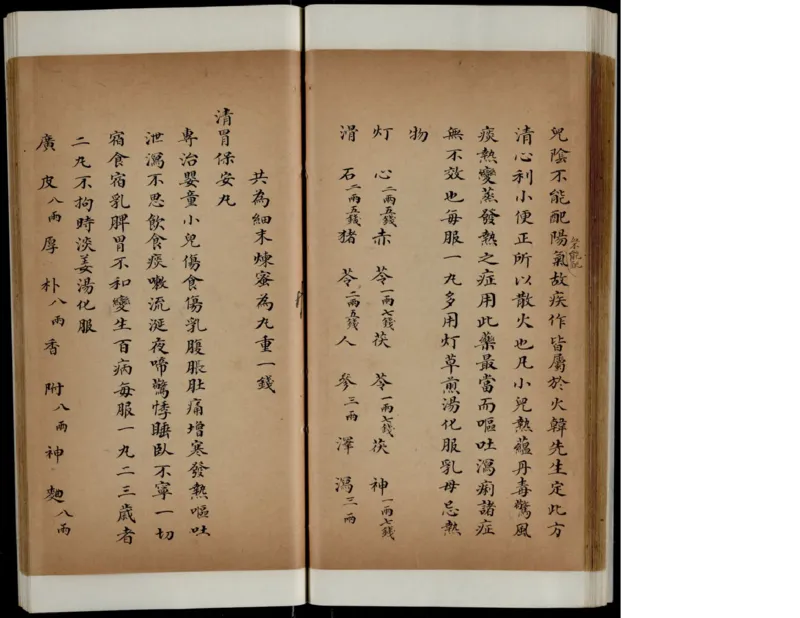 兒陰不能配陽氣故疾作皆屬於火韓先生定此方
清心利小便正所以散火也凡小兒熱蘊丹毒驚風
痰熱變蒸發熱之症用此藥最當而嘔吐瀉痢諸症
無不效也每服一丸多用灯草煎湯化服乳母忌熱
物
灯心二兩五錢赤苓一兩七錢茯苓一兩七錢茯神一兩七錢
滑石二兩五錢猪苓二兩五錢人參三兩澤瀉三兩
共為細末煉蜜為丸重一錢
清胃保安丸
專治嬰童小兒傷食傷乳腹脹肚痛增寒發熱嘔吐
泄瀉不思飲食痰嗽流涎夜啼驚悸睡臥不寧一切
宿食宿乳脾胃不和變生百病每服一丸二三歲者
二丸不拘時淡姜湯化服
廣皮八兩厚朴八兩香附八兩神麯八兩